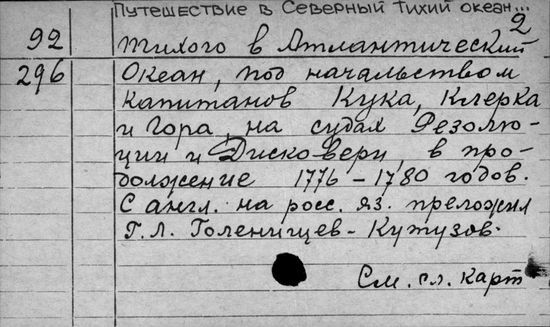 Путешествие в Северный Тихий океан...
2
92 Тихого в Атлантический
296 Океан, под начальством
капитанов Кука, Клерка
и Гора, на судах Резолю-
ции и Дисковери, в про-
должение 1776 – 1780 годов.
С англ. на росс. яз. преложил
Г. Л. Голенищев-Кутузов.
См. сл. карт